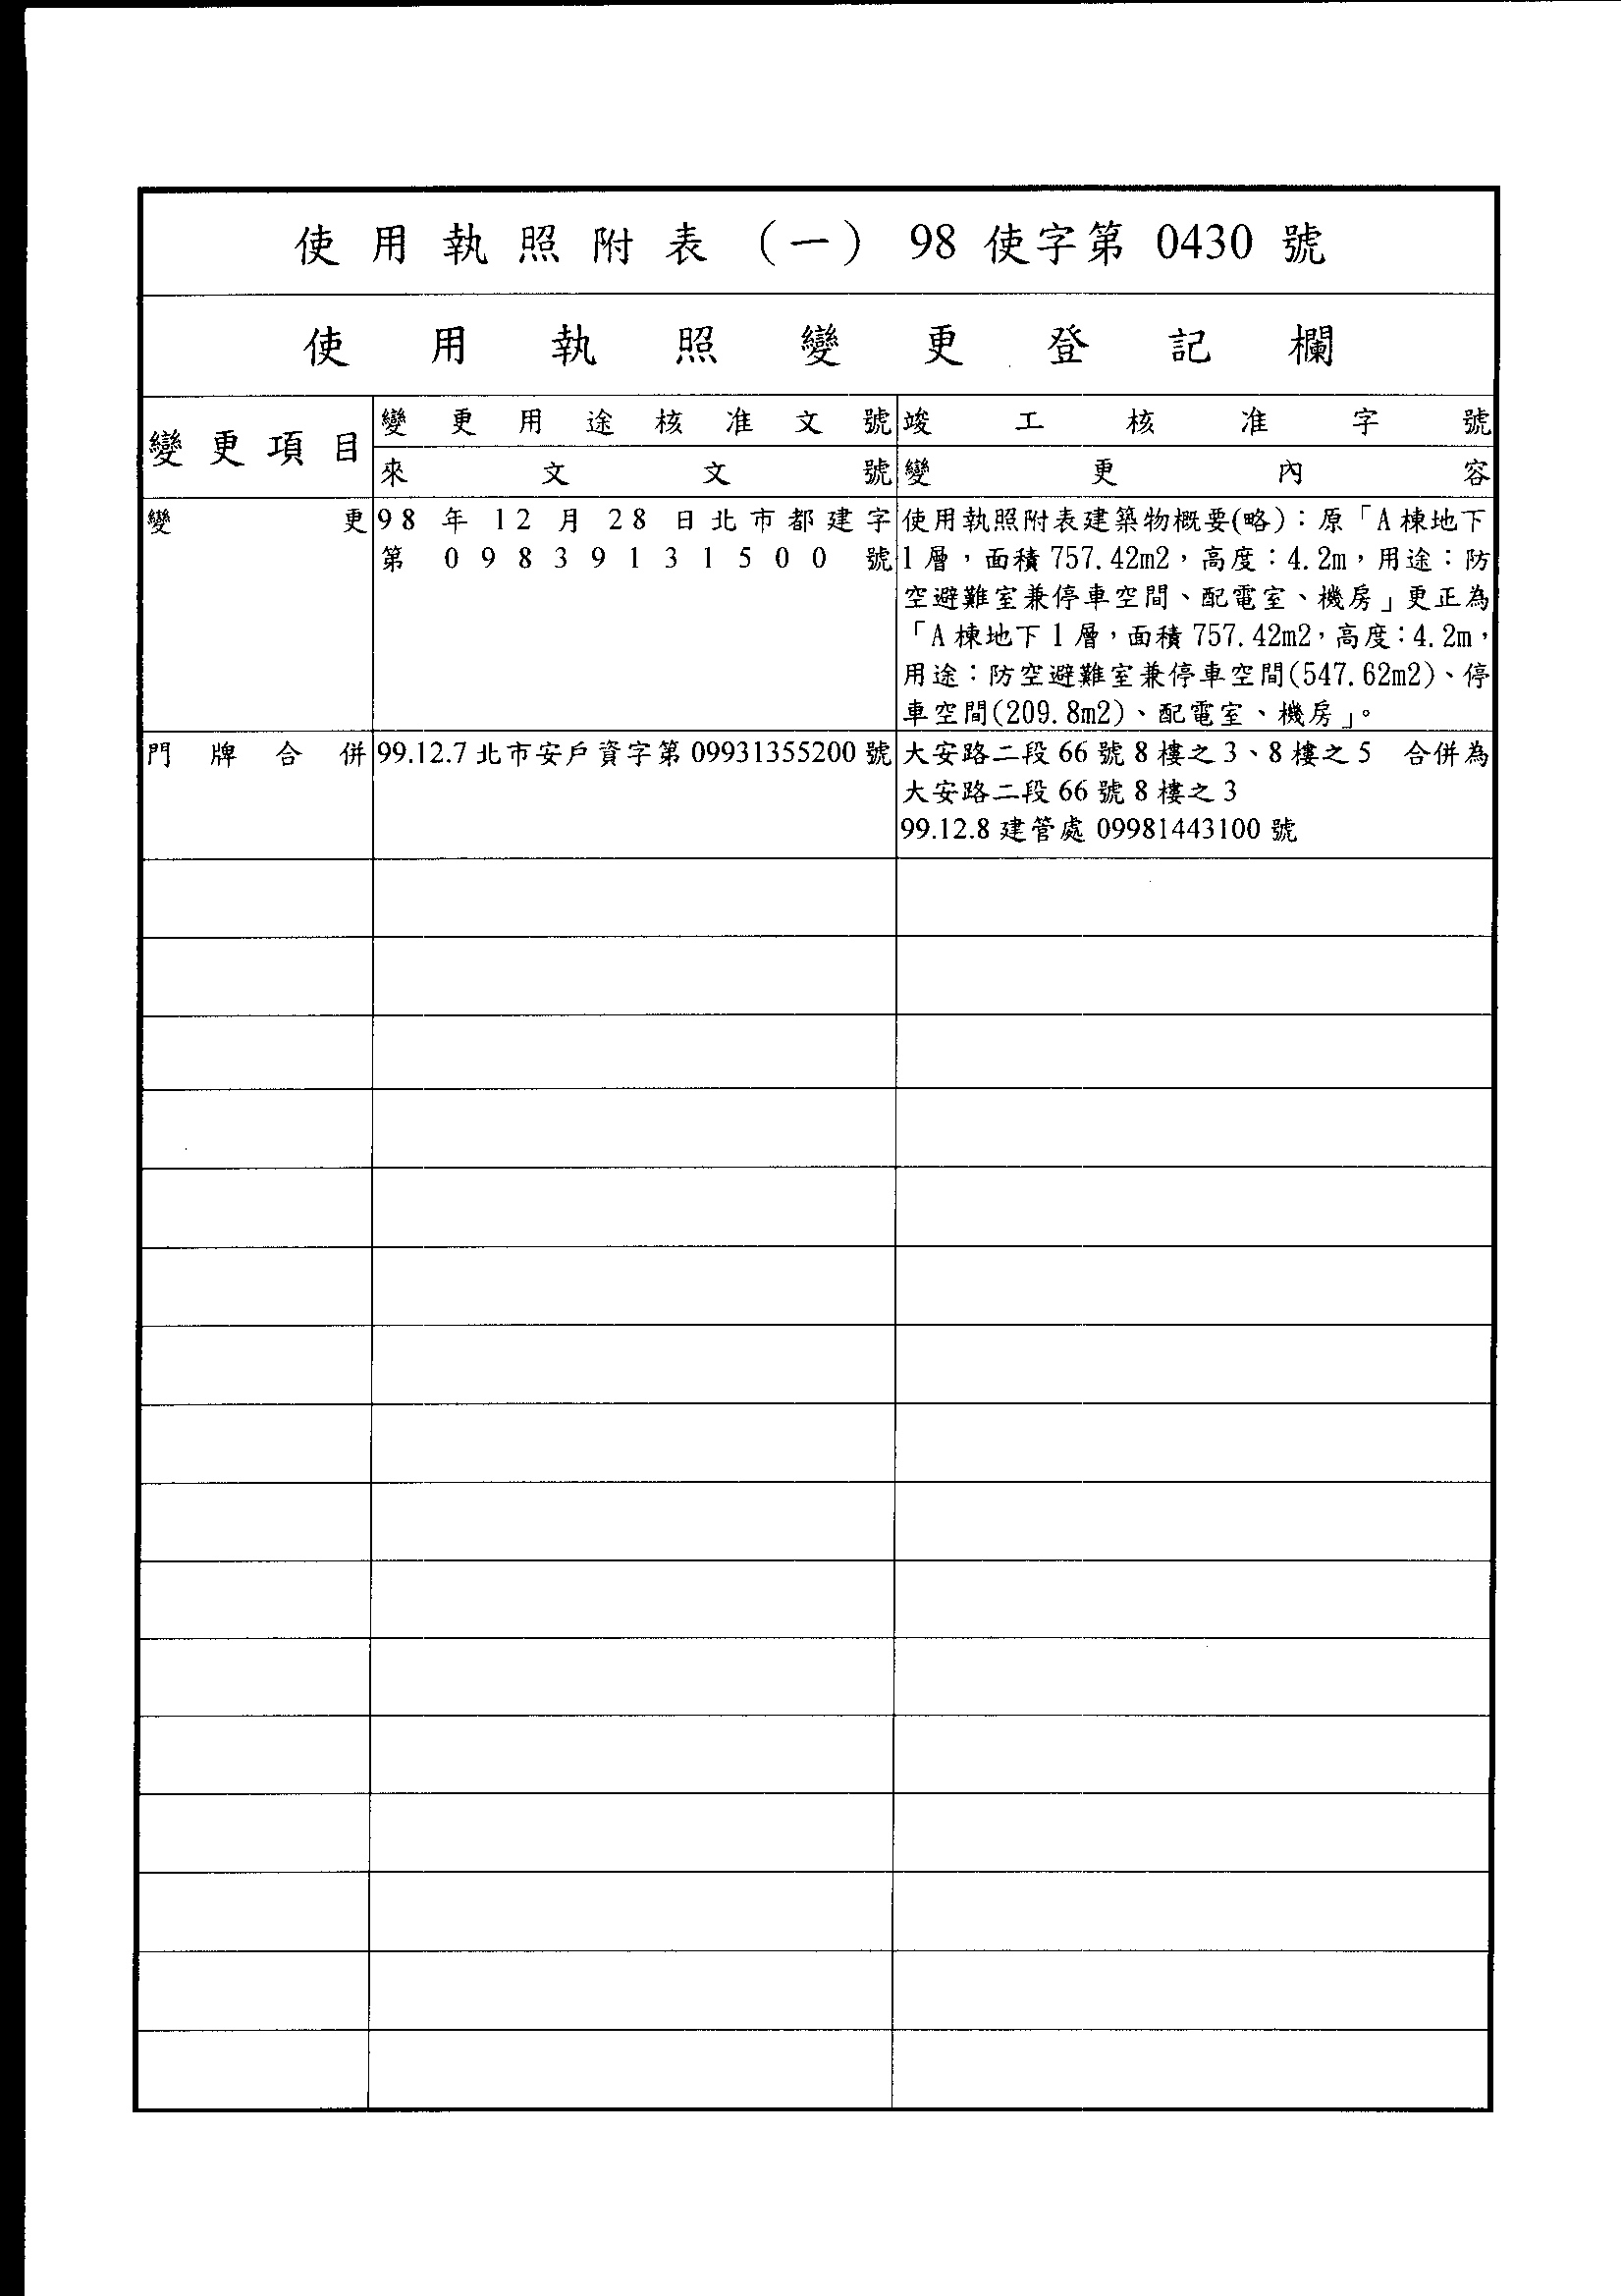 使用執照附表（一） 98 使字第 0430 號
使用執照變更登記欄
變更項目
變更用途核准文號
竣工核准字號
來文文號
變更內容
變更
98 年 12 月 28 日北市都建字
第 09839131500 號
使用執照附表建築物概要(略)：原「A 棟地下
1 層，面積 757.42m2，高度：4.2m，用途：防
空避難室兼停車空間、配電室、機房」更正為
「A 棟地下 1 層，面積 757.42m2，高度：4.2m，
用途：防空避難室兼停車空間(547.62m2)、停
車空間(209.8m2)、配電室、機房」。
門牌合併
99.12.7 北市安戶資字第 09931355200 號
大安路二段 66 號 8 樓之 3、8 樓之 5　合併為
大安路二段 66 號 8 樓之 3
99.12.8 建管處 09981443100 號